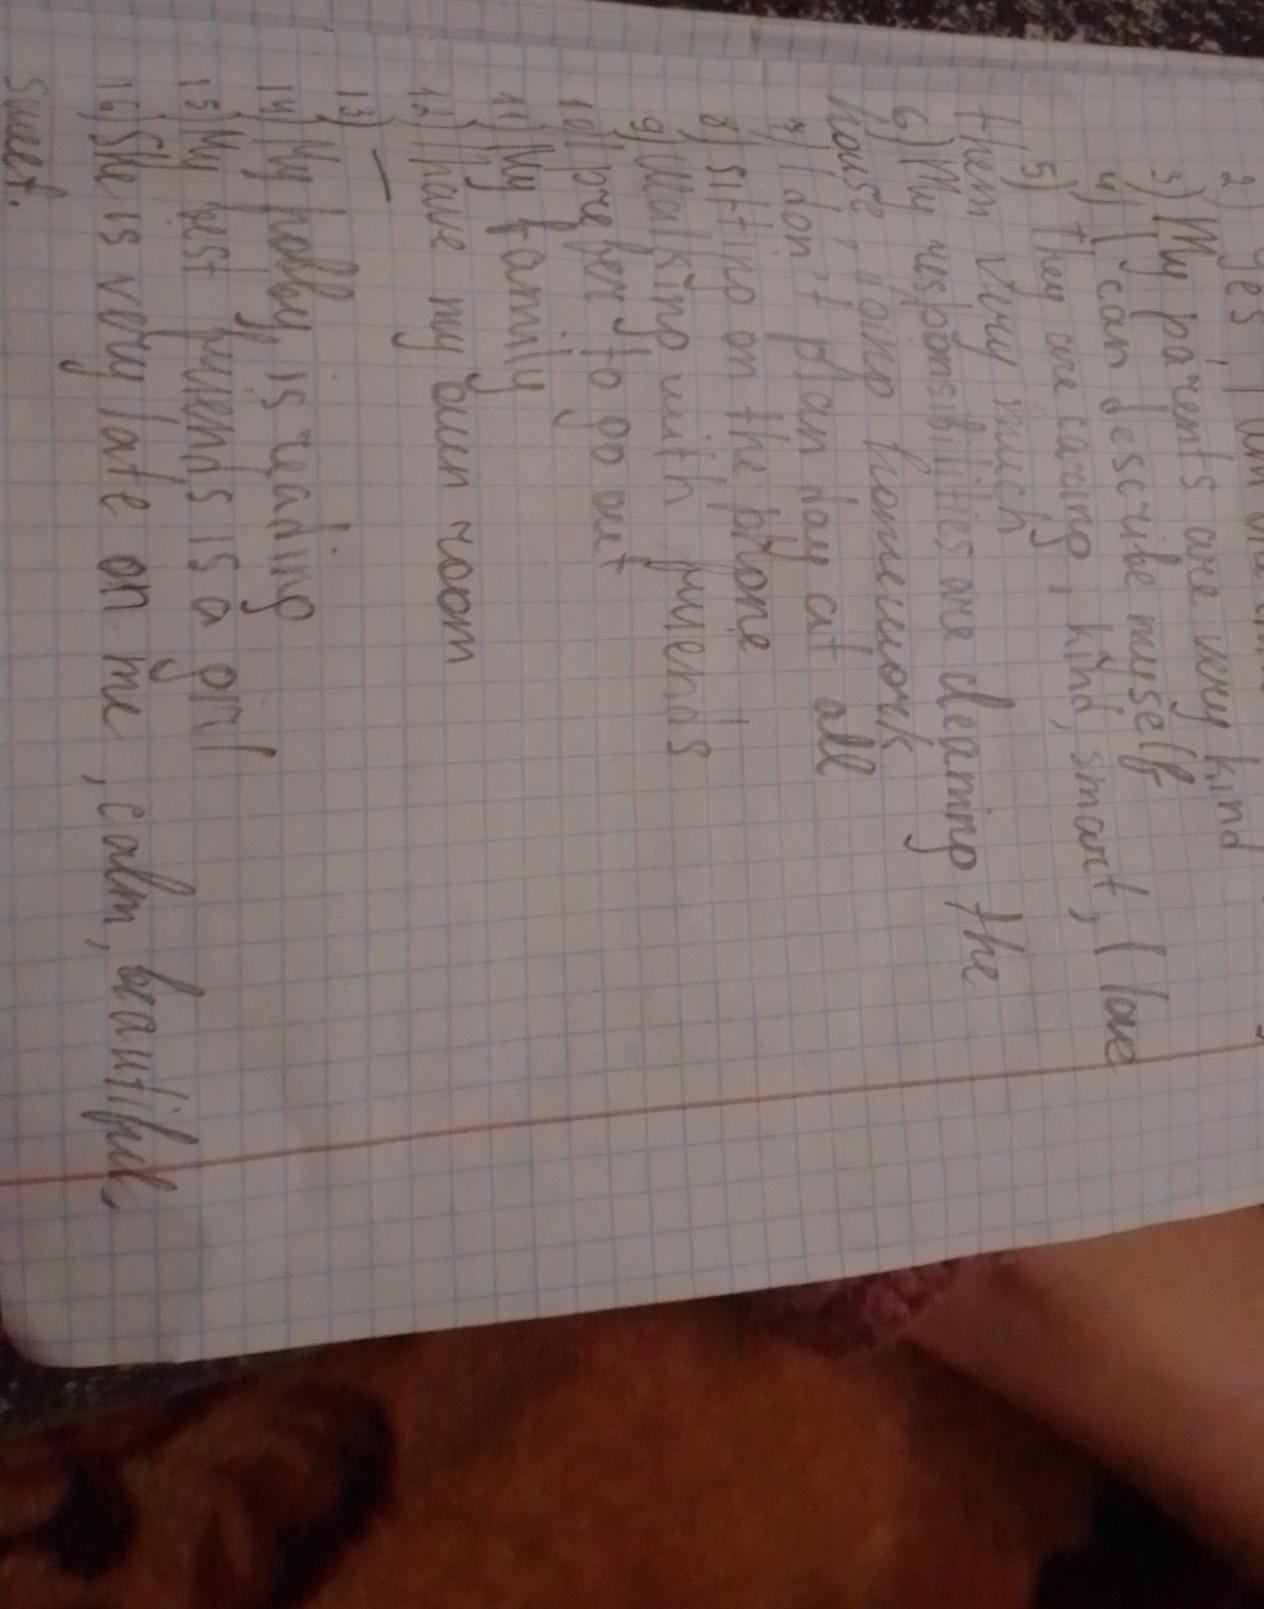 2) yes I am the
3) My parents are very kind
4) I can describe muself
5) they are caring, kind, smart, I love
them very much
6) My responsibilities are cleaning the
house, doing homework
7) I don't plan day at all
8) sitting on the phone
9) Walking with friends
10) I prefer to go out
11) My family
12) I have my own room
13) —
14) My hobby is reading
15) My best friends is a girl
16) She is very late on me, calm, beautiful,
sweet.